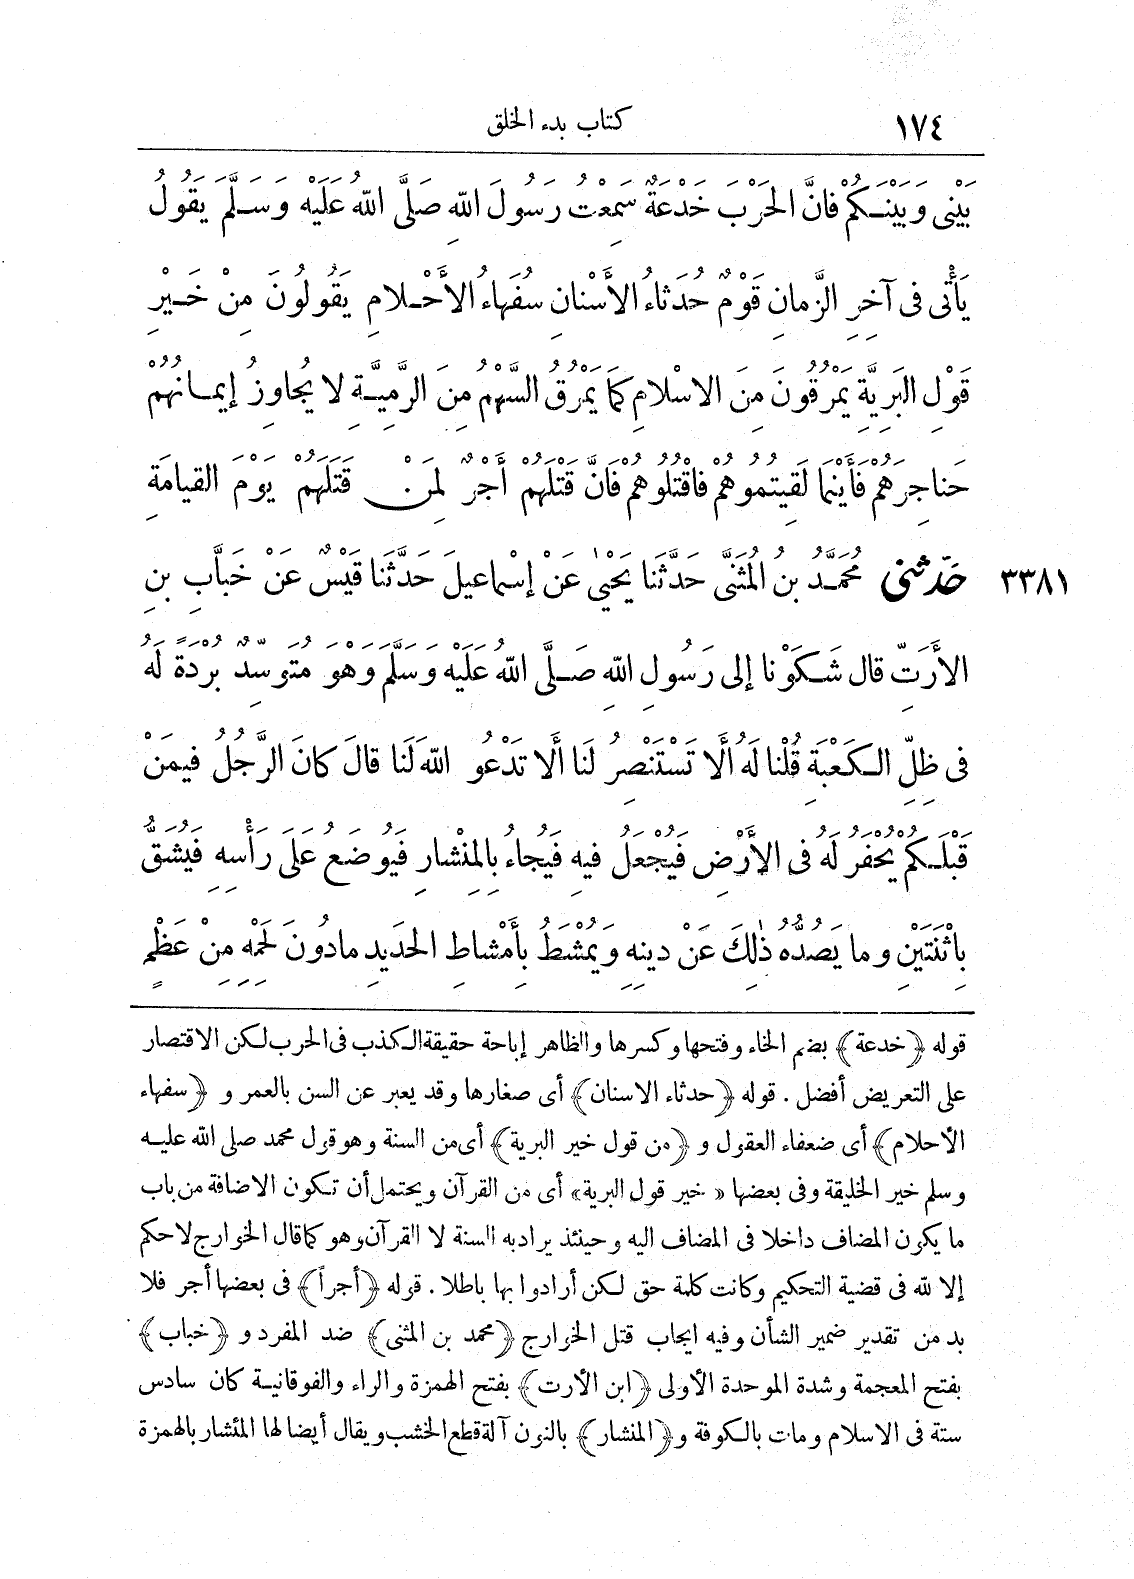 ١٧٤ كتاب بدء الخلق
بَيْنِى وَبَيْنَكُمْ فَانَّ الحَرْبَ خَدْعَةٌ سَمِعْتُ رَسُولَ اللهِ صَلَّى اللهُ عَلَيْهِ وَسَلَّمَ يَقُولُ
يَأْتِى فى آخِرِ الزَّمانِ قَوْمٌ حُدَثاءُ الأَسْنانِ سُفَهاءُ الأَحْلامِ يَقُولُونَ مِنْ خَيْرِ
قَوْلِ البَرِيَّةِ يَمْرُقُونَ مِنَ الاسْلامِ كَمَا يَمْرُقُ السَّهْمُ مِنَ الرَّمِيَّةِ لا يُجاوِزُ إيمانُهُمْ
حَناجِرَهُمْ فَأَيْنَمَا لَقِيتُمُوهُمْ فاقْتُلُوهُمْ فَانَّ قَتْلَهُمْ أَجْرٌ لِمَنْ قَتَلَهُمْ يَوْمَ القيامَةِ
٣٣٨١ حَدّثنى مُحَمَّدُ بنُ المُثَنَّى حَدَّثَنَا يَحْيَى عَنْ إسْماعيلَ حَدَّثَنا قَيْسٌ عَنْ خَبَّابِ بنِ
الأَرَتِّ قال شَكَوْنا إلى رَسُولِ اللهِ صَلَّى اللهُ عَلَيْهِ وَسَلَّمَ وَهْوَ مُتَوَسِّدٌ بُرْدَةً لَهُ
فى ظِلِّ الكَعْبَةِ قُلْنا لَهُ أَلَا تَسْتَنْصِرُ لَنا أَلا تَدْعُو اللهَ لَنا قالَ كانَ الرَّجُلُ فيمَنْ
قَبْلَكُمْ يُحْفَرُ لَهُ فى الأَرْضِ فَيُجْعَلُ فيهِ فَيُجاءُ بِالمِنْشارِ فَيُوضَعُ عَلَى رَأْسِهِ فَيُشَقُّ
باثْنَتَيْنِ وما يَصُدُّهُ ذٰلِكَ عَنْ دينِهِ وَيُمْشَطُ بِأَمْشاطِ الحَديدِ مادُونَ لَحْمِهِ مِنْ عَظْمٍ
قوله ﴿خدعة﴾ بضم الخاء وفتحها وكسرها والظاهر إباحة حقيقة الكذب فى الحرب لكن الاقتصار
على التعريض أفضل . قوله ﴿حدثاء الاسنان﴾ أى صغارها وقد يعبر عن السن بالعمر و ﴿سفهاء
الأحلام﴾ أى ضعفاء العقول و ﴿من قول خير البرية﴾ أى من السنة وهو قول محمد صلى الله عليه
وسلم خير الخليقة وفى بعضها «خير قول البرية» أى من القرآن ويحتمل أن تكون الاضافة من باب
ما يكون المضاف داخلا فى المضاف اليه وحينئذ يراد به السنة لا القرآن وهو كما قال الخوارج لا حكم
إلا لله فى قضية التحكيم وكانت كلمة حق لكن أرادوا بها باطلا . قوله ﴿أجراً﴾ فى بعضها أجر فلا
بد من تقدير ضمير الشأن وفيه ايجاب قتل الخوارج ﴿محمد بن المثنى﴾ ضد المفرد و ﴿خباب﴾
بفتح المعجمة وشدة الموحدة الأولى ﴿ابن الأرت﴾ بفتح الهمزة والراء والفوقانية كان سادس
ستة فى الاسلام ومات بالكوفة و ﴿المنشار﴾ بالنون آلة قطع الخشب ويقال أيضا لها المئشار بالهمزة